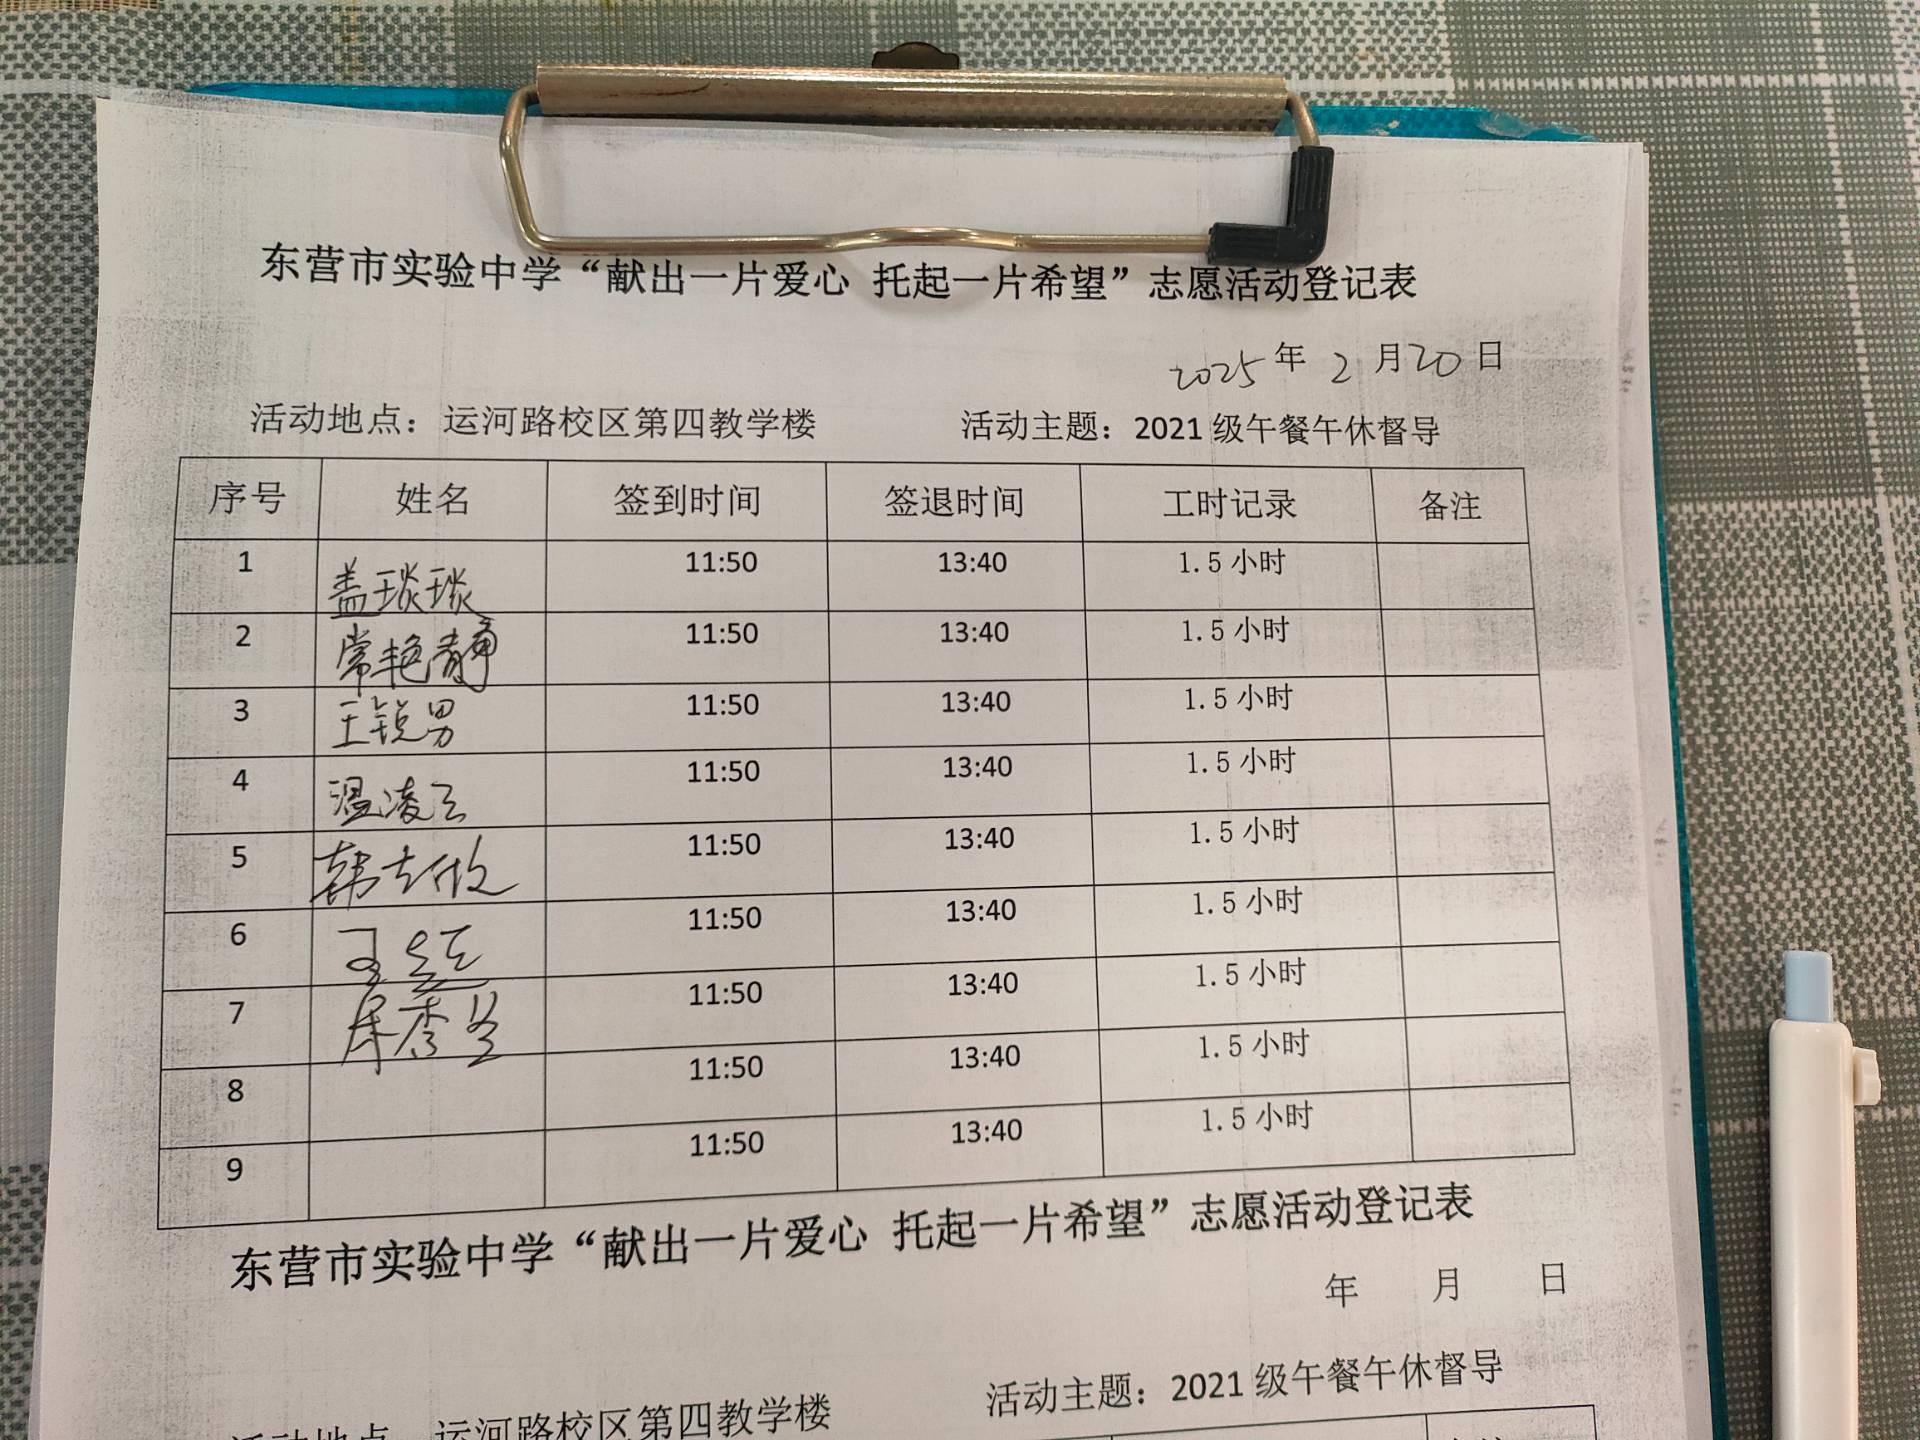 东营市实验中学“献出一片爱心 托起一片希望”志愿活动登记表
2025年 2 月20日
活动地点：运河路校区第四教学楼 活动主题：2021级午餐午休督导
序号 姓名 签到时间 签退时间 工时记录 备注
1 盖琰琰 11:50 13:40 1.5小时
2 常艳静 11:50 13:40 1.5小时
3 王锐男 11:50 13:40 1.5小时
4 温凌云 11:50 13:40 1.5小时
5 韩 11:50 13:40 1.5小时
6 11:50 13:40 1.5小时
7 11:50 13:40 1.5小时
8 11:50 13:40 1.5小时
9 11:50 13:40 1.5小时
东营市实验中学“献出一片爱心 托起一片希望”志愿活动登记表
年 月 日
活动地点 运河路校区第四教学楼 活动主题：2021级午餐午休督导